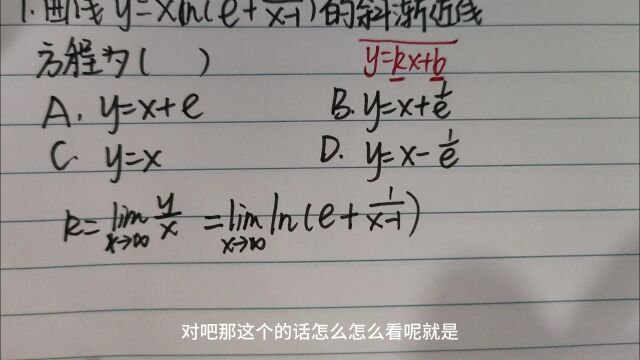 1. 曲线 y=xln(e+1/(x-1))的斜渐近线
方程为( ) y=kx+b
A. y=x+e B. y=x+1/e
C. y=x D. y=x-1/e
k=lim x→∞ y/x =lim x→∞ ln(e+1/(x-1))
对吧那这个的话怎么怎么看呢就是